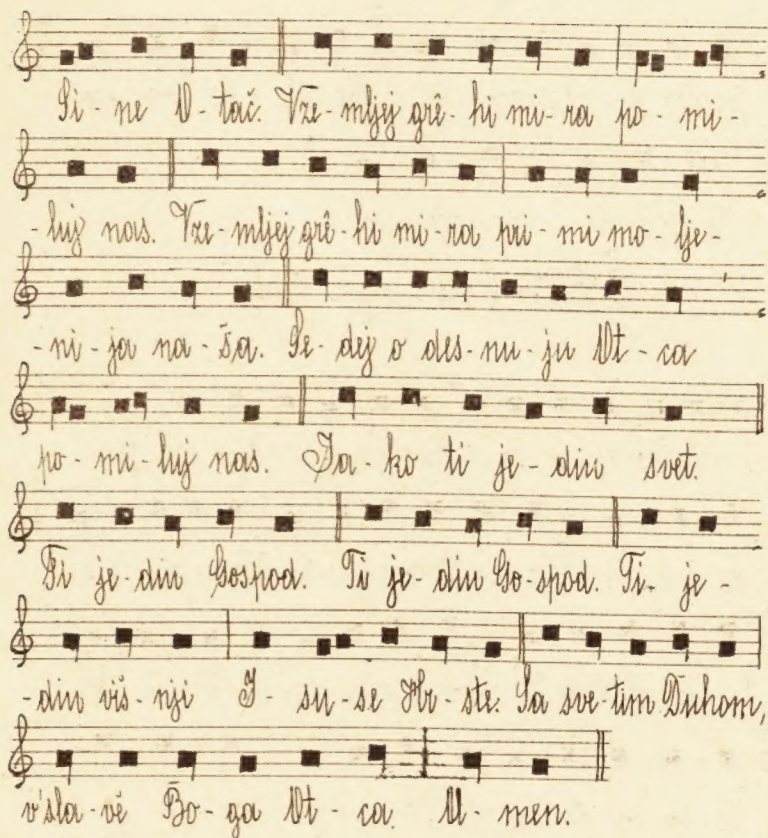 Si - ne O - tač. Vze - mljej grê - hi mi - ra po - mi -
- luj nas. Vze - mljej grê - hi mi - ra pri - mi mo - lje -
- ni - ja na - ša. Se - dej o des - nu - ju Ot - ca
po - mi - luj nas. Ja - ko ti je - din svet.
Ti je - din Gospod. Ti je - din Go - spod. Ti - je -
- din viš - nji I - su - se Hr - ste. Sa sve - tim Duhom,
v'sla - vê Bo - ga Ot - ca. A - men.